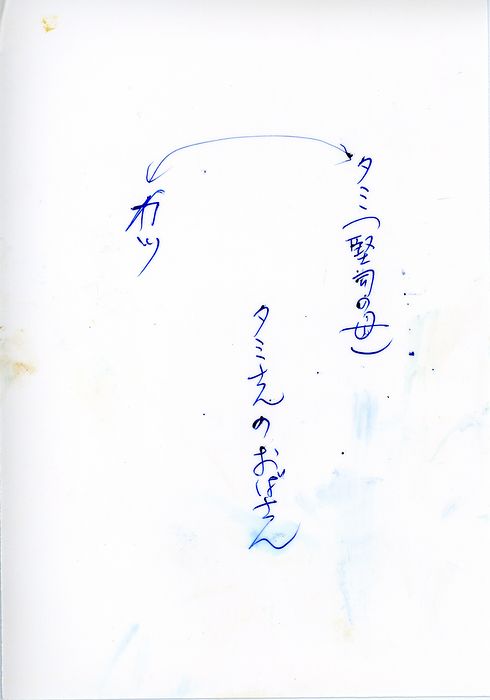 タミ(堅司の母)
タミさんのおばさん